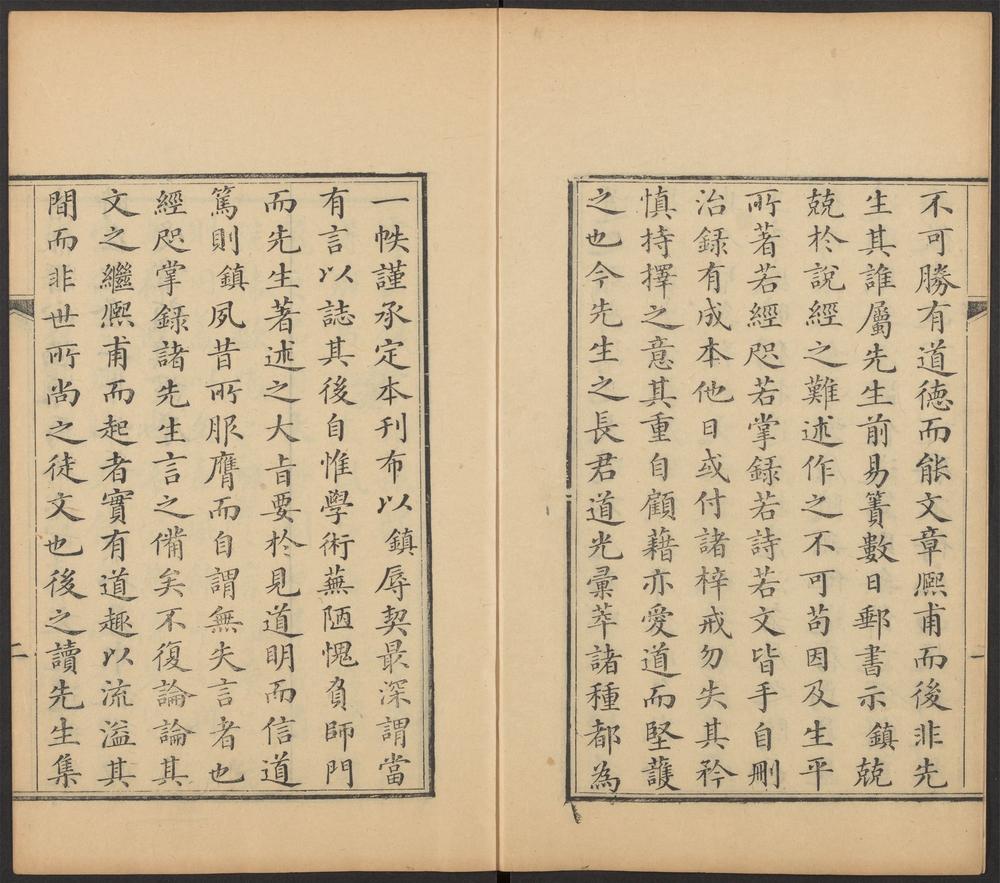 不可勝有道德而能文章熈甫而後非先
生其誰屬先生前易簀數日郵書示鎮兢
兢於說經之難述作之不可苟因及生平
所著若經咫若掌録若詩若文皆手自刪
治録有成本他日或付諸梓戒勿失其矜
慎持擇之意其重自顧藉亦愛道而堅護
之也今先生之長君道光彚萃諸種都為
一
一帙謹承定本刊布以鎮辱契最深謂當
有言以誌其後自惟學術蕪陋愧負師門
而先生著述之大旨要於見道明而信道
篤則鎮夙昔所服膺而自謂無失言者也
經咫掌録諸先生言之備矣不復論論其
文之繼熈甫而起者實有道趣以流溢其
間而非世所尚之徒文也後之讀先生集
二